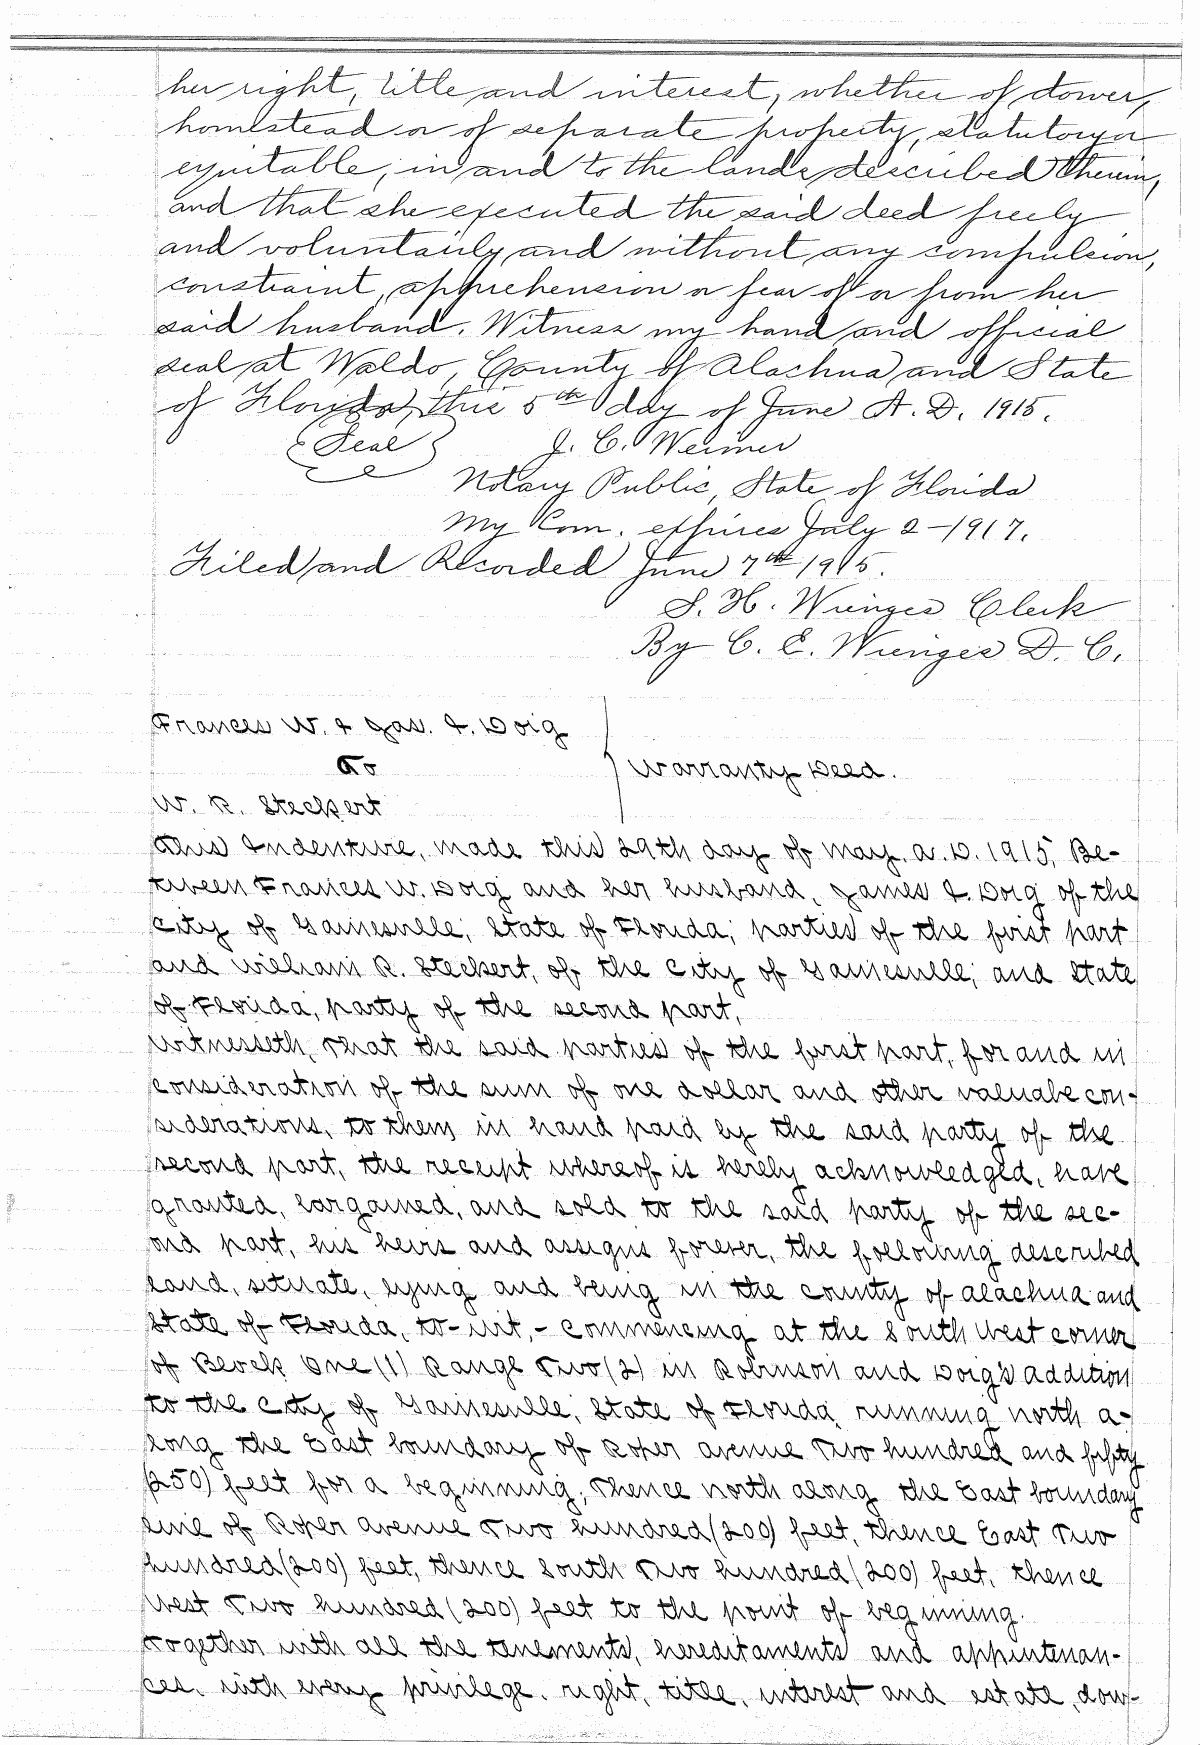 her right, title and interest, whether of dower,
homestead or of separate property, statutory or
equitable, in and to the lands described therein,
and that she executed the said deed freely
and voluntarily and without any compulsion,
constraint, apprehension or fear of or from her
said husband. Witness my hand and official
seal at Waldo, County of Alachua and State
of Florida, this 5th day of June A. D. 1915.
Seal J. C. Weimer
Notary Public, State of Florida
My Com. expires July 2-1917.
Filed and Recorded June 7th 1915.
S. H. Wienges Clerk
By C. E. Wienges D. C.
Frances W. & Jas. I. Doig
To
Warranty Deed.
W. R. Steckert
This Indenture, made this 29th day of May, A. D. 1915, Be-
tween Frances W. Doig and her husband, James I. Doig of the
City of Gainesville, State of Florida, parties of the first part
and William R. Steckert, of the City of Gainesville, and State
of Florida, party of the second part,
Witnesseth, that the said parties of the first part, for and in
consideration of the sum of one dollar and other valuabe con-
siderations, to them in hand paid by the said party of the
second part, the receipt whereof is hereby acknowledged, have
granted, bargained, and sold to the said party of the sec-
ond part, his heirs and assigns forever, the following described
land, situate, lying and being in the county of Alachua and
State of Florida, to-wit,- Commencing at the South West corner
of Block One (1) Range Two (2) in Robinson and Doig's Addition
to the City of Gainesville, State of Florida, running north a-
long the East boundary of Roper avenue Two hundred and fifty
(250) feet for a beginning; Thence north along the East boundary
line of Roper avenue Two hundred (200) feet, thence East Two
hundred (200) feet, thence South Two hundred (200) feet, thence
West Two hundred (200) feet to the point of beginning.
Together with all the tenements, hereditaments and appurtenan-
ces, with every privilege, right, title, interest and estate, dow-